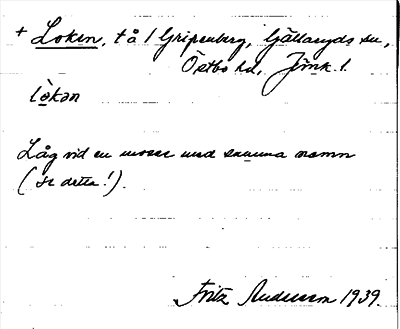 + Loken, t å / Gripenberg, Gällaryds sn,
Östbo hd, Jönk. l.
lò̲kən
Låg vid en mosse med samma namn
(se detta!).
Fritz Andersson 1939.